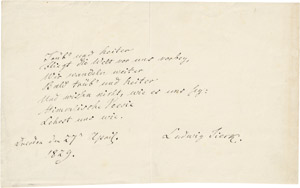 Trüb' und heiter
Fliegt die Welt vor uns vorbey,
Wir wandeln weiter
Bald trüb' und heiter
Und wissen nicht, wie es uns sey:
Himmlische Poesie
Lehrst uns wie.
Dresden den 27 April.
1829.
Ludwig Tieck.